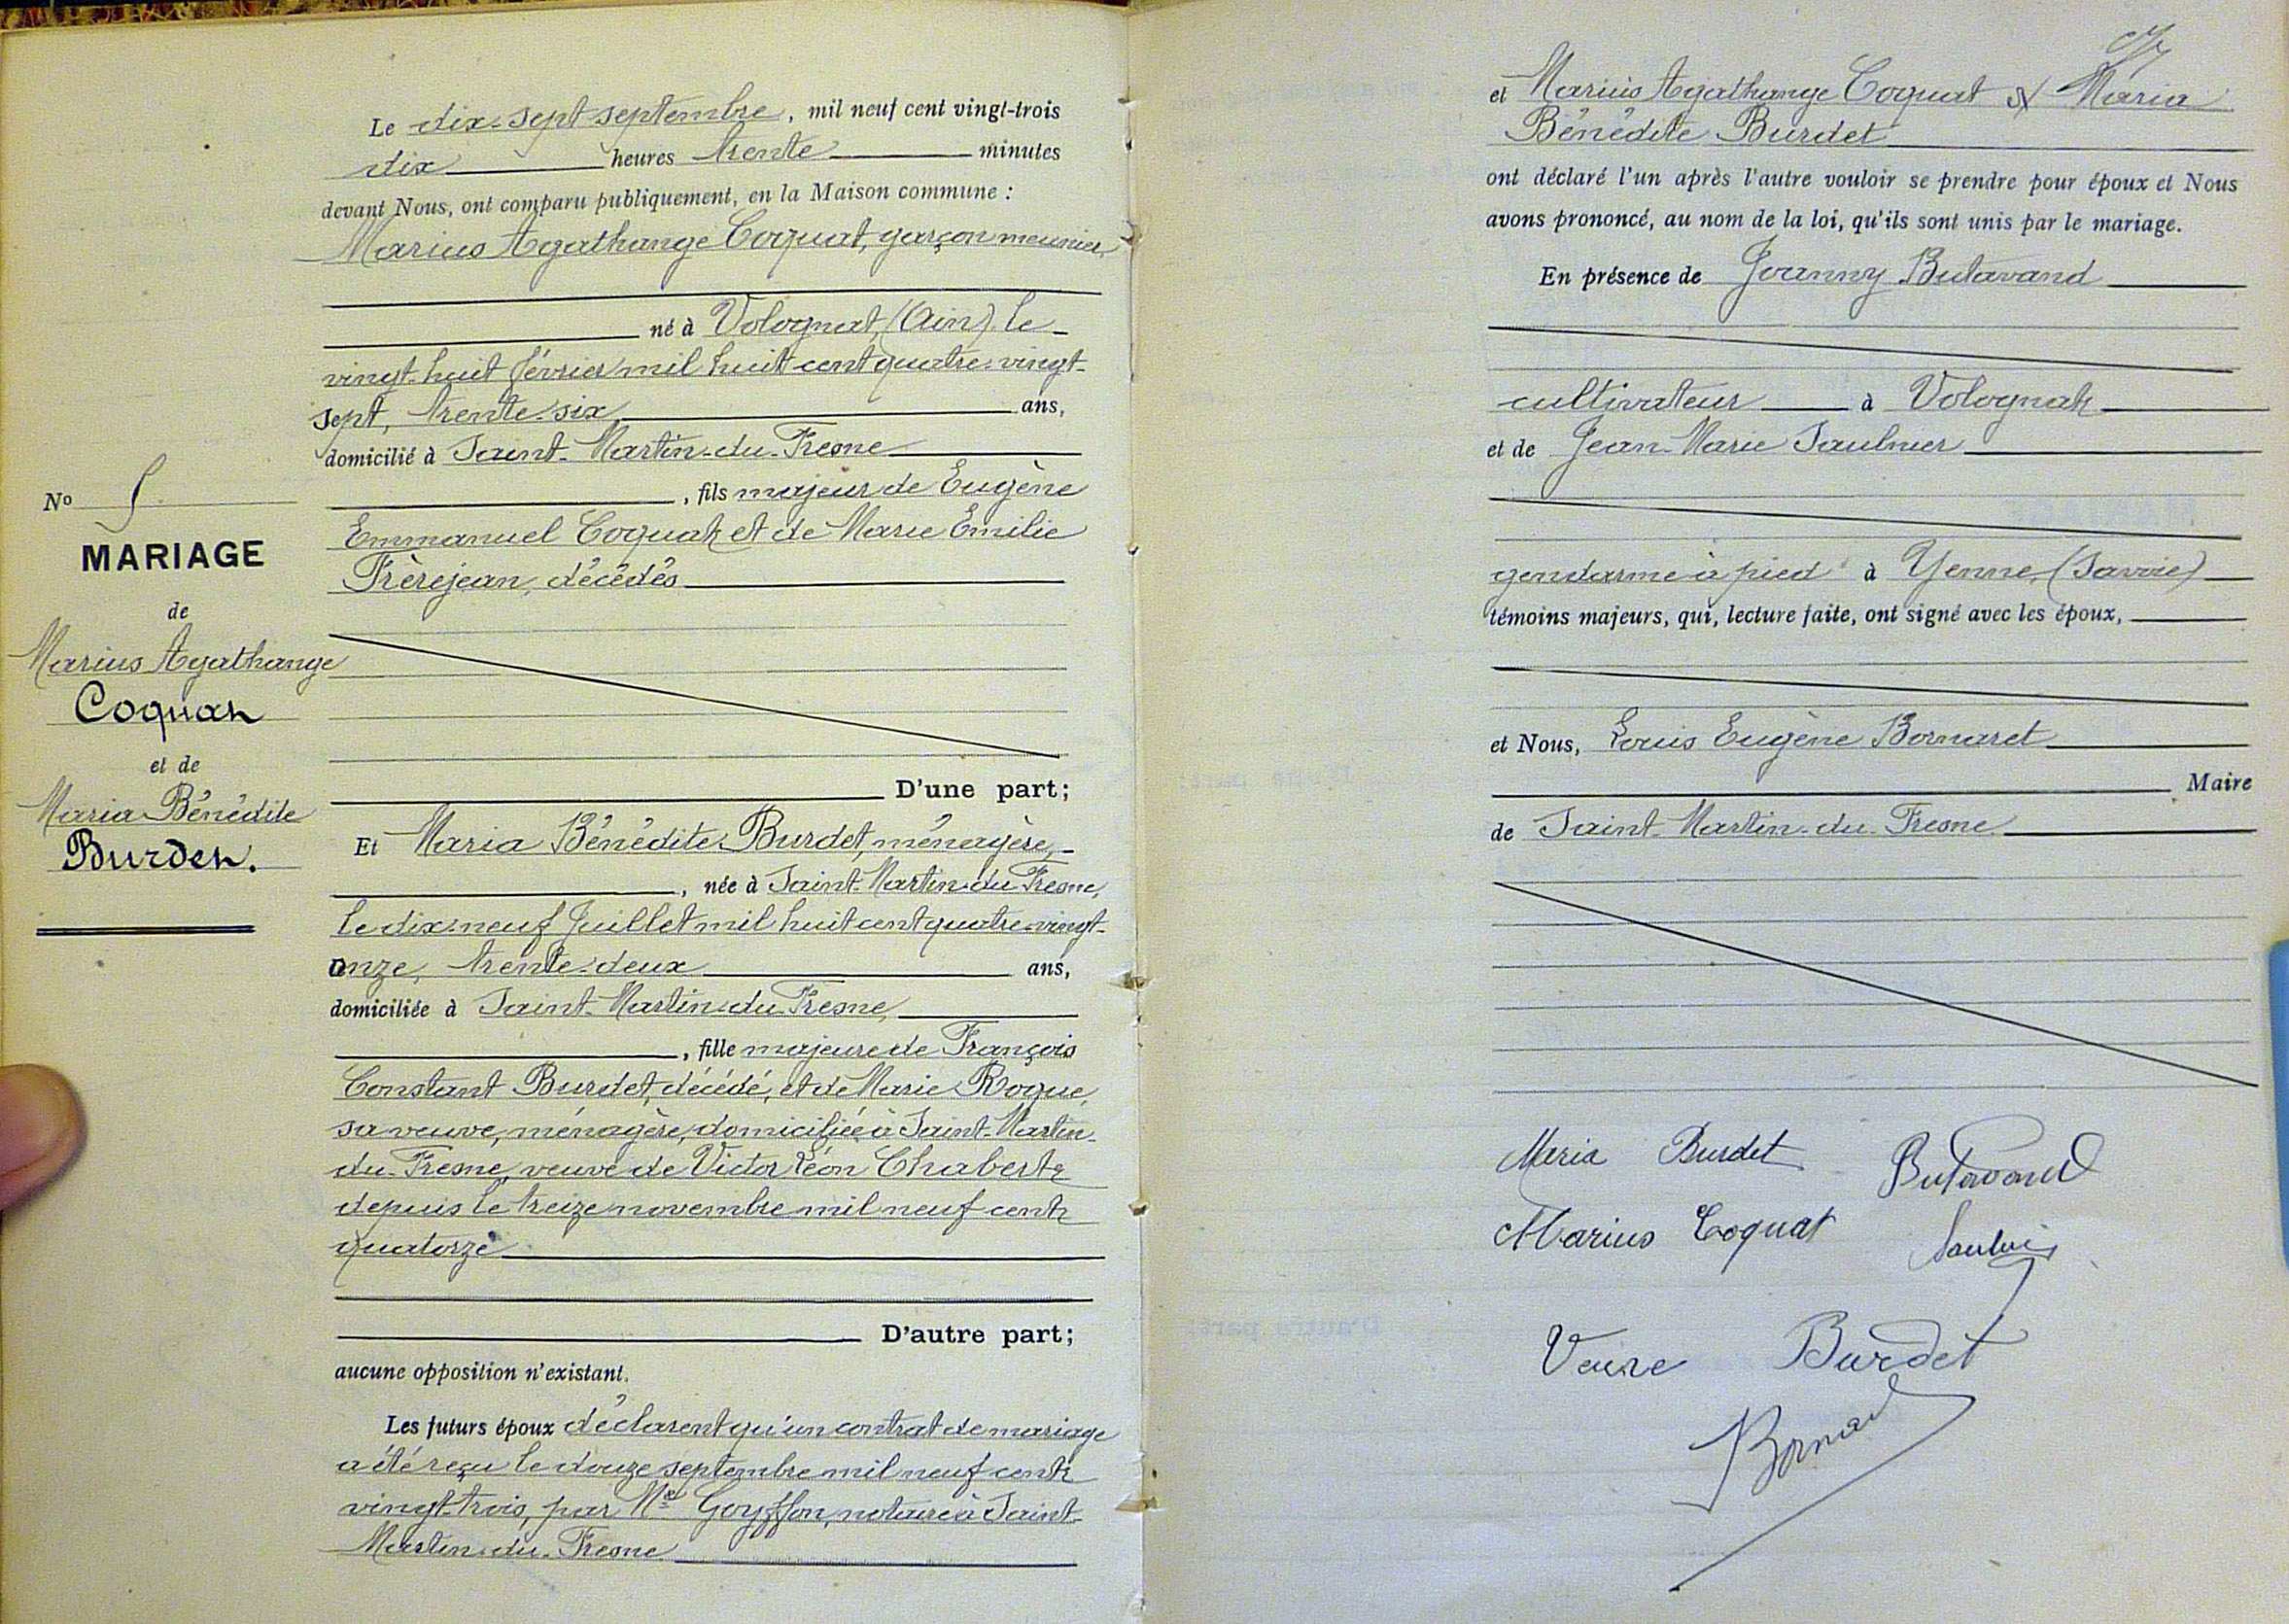 Le dix-sept septembre, mil neuf cent vingt-trois
dix heures trente minutes
devant Nous, ont comparu publiquement, en la Maison commune :
Marius Agathange Coquat, garçon meunier,
né à Volognat, (Ain), le
vingt-huit février mil huit cent quatre-vingt-
sept, trente-six ans,
domicilié à Saint-Martin-du-Fresne
, fils majeur de Eugène
Emmanuel Coquat et de Marie Emilie
Frèrejean, décédés
D'une part;
Et Maria Bénédite Burdet, ménagère,
, née à Saint-Martin-du-Fresne,
le dix-neuf Juillet mil huit cent quatre-vingt-
onze, trente-deux ans,
domiciliée à Saint-Martin-du-Fresne,
, fille majeure de François
Constant Burdet, décédé, et de Marie Rogue,
sa veuve, ménagère, domiciliée à Saint-Martin-
du-Fresne, veuve de Victor Léon Chabert
depuis le treize novembre mil neuf cent
quatorze
D'autre part;
aucune opposition n'existant.
Les futurs époux déclarent qu'un contrat de mariage
a été reçu le douze septembre mil neuf cent
vingt-trois, par Me Goyffon, notaire à Saint-
Martin-du-Fresne
No 5
MARIAGE
de
Marius Agathange
Coquat
et de
Maria Bénédite
Burdet.
et Marius Agathange Coquat & Maria
Bénédite Burdet
ont déclaré l'un après l'autre vouloir se prendre pour époux et Nous
avons prononcé, au nom de la loi, qu'ils sont unis par le mariage.
En présence de Joanny Butavand
cultivateur à Volognat
et de Jean-Marie Saulnier
gendarme à pied à Yenne, (Savoie)
témoins majeurs, qui, lecture faite, ont signé avec les époux,
et Nous, Louis Eugène Bornaret
Maire
de Saint-Martin-du-Fresne
Maria Burdet Butavand
Marius Coquat Saulnier
Veuve Burdet